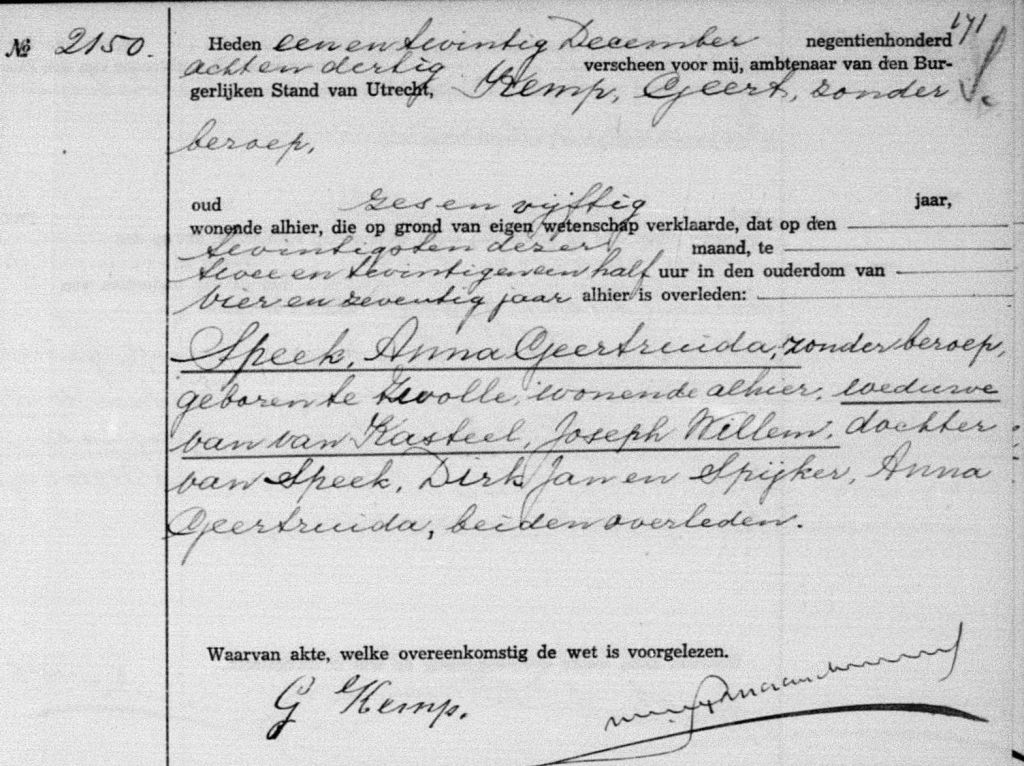 171
№ 2150. Heden een en twintig December negentienhonderd
acht en dertig verscheen voor mij, ambtenaar van den Bur-
gerlijken Stand van Utrecht, Kemp, Geert, zonder
beroep,
oud zes en vijftig jaar,
wonende alhier, die op grond van eigen wetenschap verklaarde, dat op den
twintigsten dezer maand, te
twee en twintig en een half uur in den ouderdom van
vier en zeventig jaar alhier is overleden:
Speek, Anna Geertruida, zonder beroep,
geboren te Zwolle, wonende alhier, weduwe
van van Kasteel, Joseph Willem, dochter
van Speek, Dirk Jan en Spijker, Anna
Geertruida, beiden overleden.
Waarvan akte, welke overeenkomstig de wet is voorgelezen.
G Kemp.